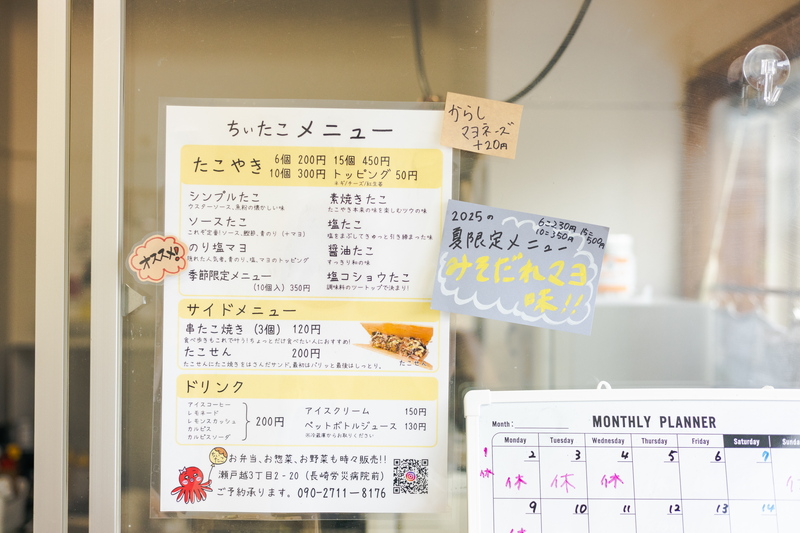 ちぃたこ メニュー
たこやき 6個 200円 15個 450円
10個 300円 トッピング 50円
＊ネギ/チーズ/紅生姜
シンプルたこ
ウスターソース、魚粉の懐かしい味
ソースたこ
これぞ定番!ソース、鰹節、青のり(＋マヨ)
のり塩マヨ
隠れた人気者。青のり、塩、マヨのトッピング
季節限定メニュー
(10個入) 350円
素焼きたこ
たこやき本来の味を楽しむツウの味
塩たこ
塩をまぶしてきゅっと引き締まった味
醤油たこ
すっきり和の味
塩コショウたこ
調味料のツートップで決まり!
オススメ!
サイドメニュー
串たこ焼き (3個) 120円
食べ歩きもこれで叶う!ちょっとだけ食べたい人におすすめ!
たこせん 200円
たこせんにたこ焼きをはさんだサンド。最初はパリッと最後はしっとり。
たこせん
ドリンク
アイスコーヒー
レモネード
レモンスカッシュ
カルピス
カルピスソーダ
200円
アイスクリーム 150円
ペットボトルジュース 130円
※冷蔵庫からお取りください
お弁当、お惣菜、お野菜も時々販売!!
瀬戸越3丁目2-20 (長崎労災病院前)
ご予約承ります。 090-2711-8176
からし
マヨネーズ
+20円
2025の
夏限定メニュー
6こ230円 15こ500円
10こ350円
みそだれマヨ
味!!
Month:
MONTHLY PLANNER
Monday Tuesday Wednesday Thursday Friday Saturday Sunda
2 3 4 5 6 7
休 休 休
9 10 11 12 13 14
休